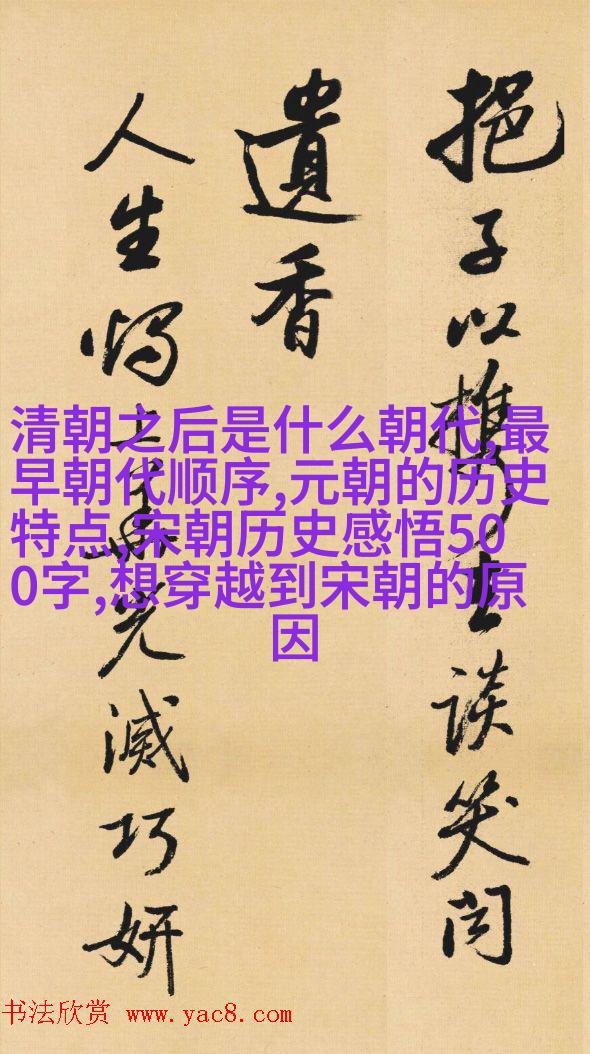 挹子以談笑
遺香
人生光滅巧妍
清朝之后是什么朝代,最
早朝代顺序,元朝的历史
特点,宋朝历史感悟50
0字,想穿越到宋朝的原
因
书法欣赏 www.yac8.com